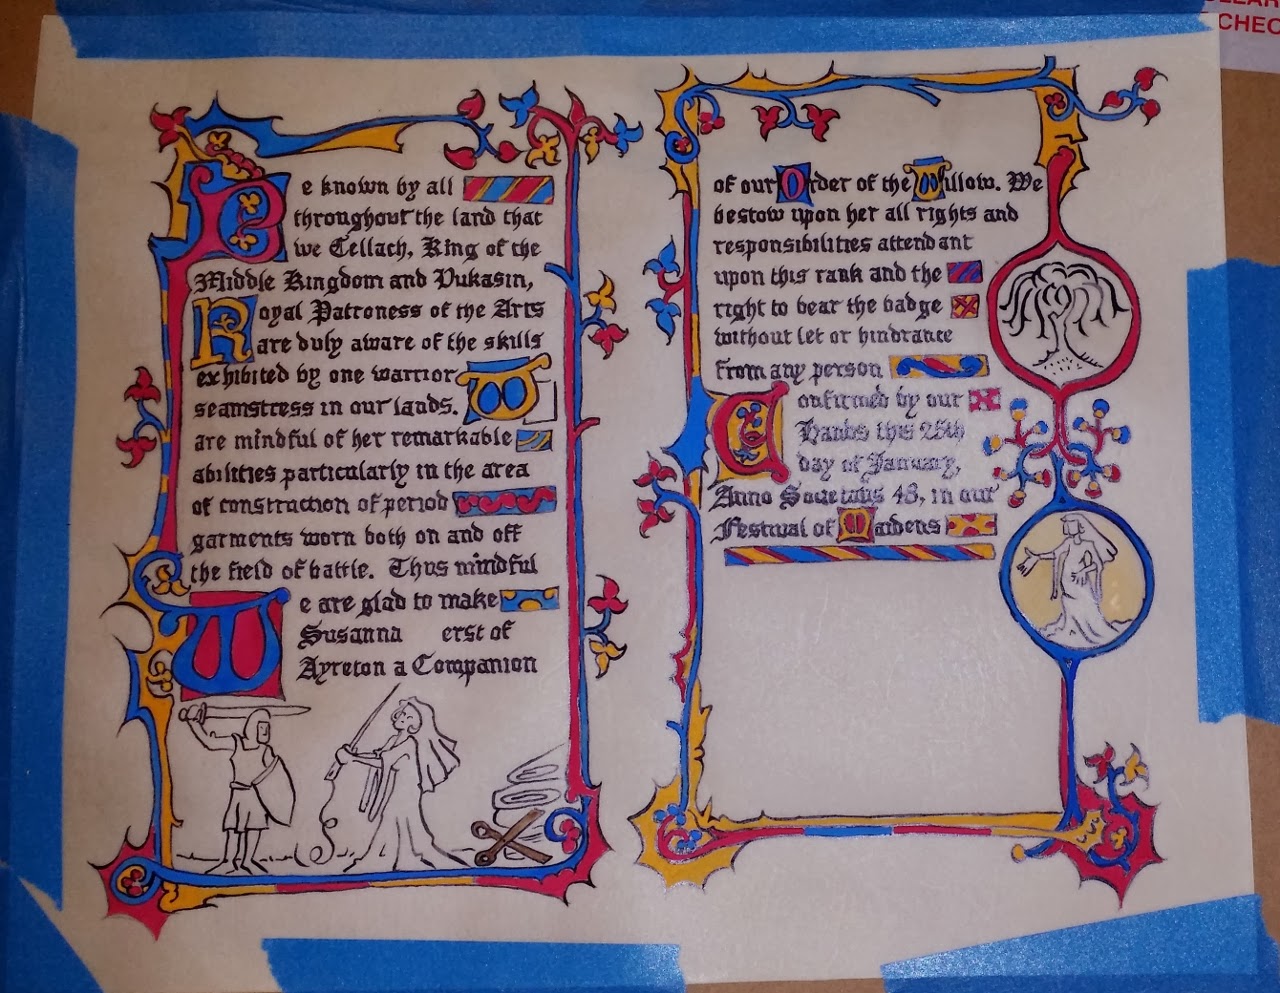 Be known by all
throughout the land that
we Cellach, King of the
Middle Kingdom and Vukasin,
Royal Patroness of the Arts
are duly aware of the skills
exhibited by one warrior
seamstress in our lands. W
are mindful of her remarkable
abilities particularly in the area
of construction of period
garments worn both on and off
the field of battle. Thus mindful
We are glad to make
Susanna erst of
Ayreton a Companion
of our Order of the Willow. We
bestow upon her all rights and
responsibilities attendant
upon this rank and the
right to bear the badge
without let or hindrance
from any person
Confirmed by our
Hands this 25th
day of January,
Anno Societatis 48, in our
Festival of Maidens
CHEC